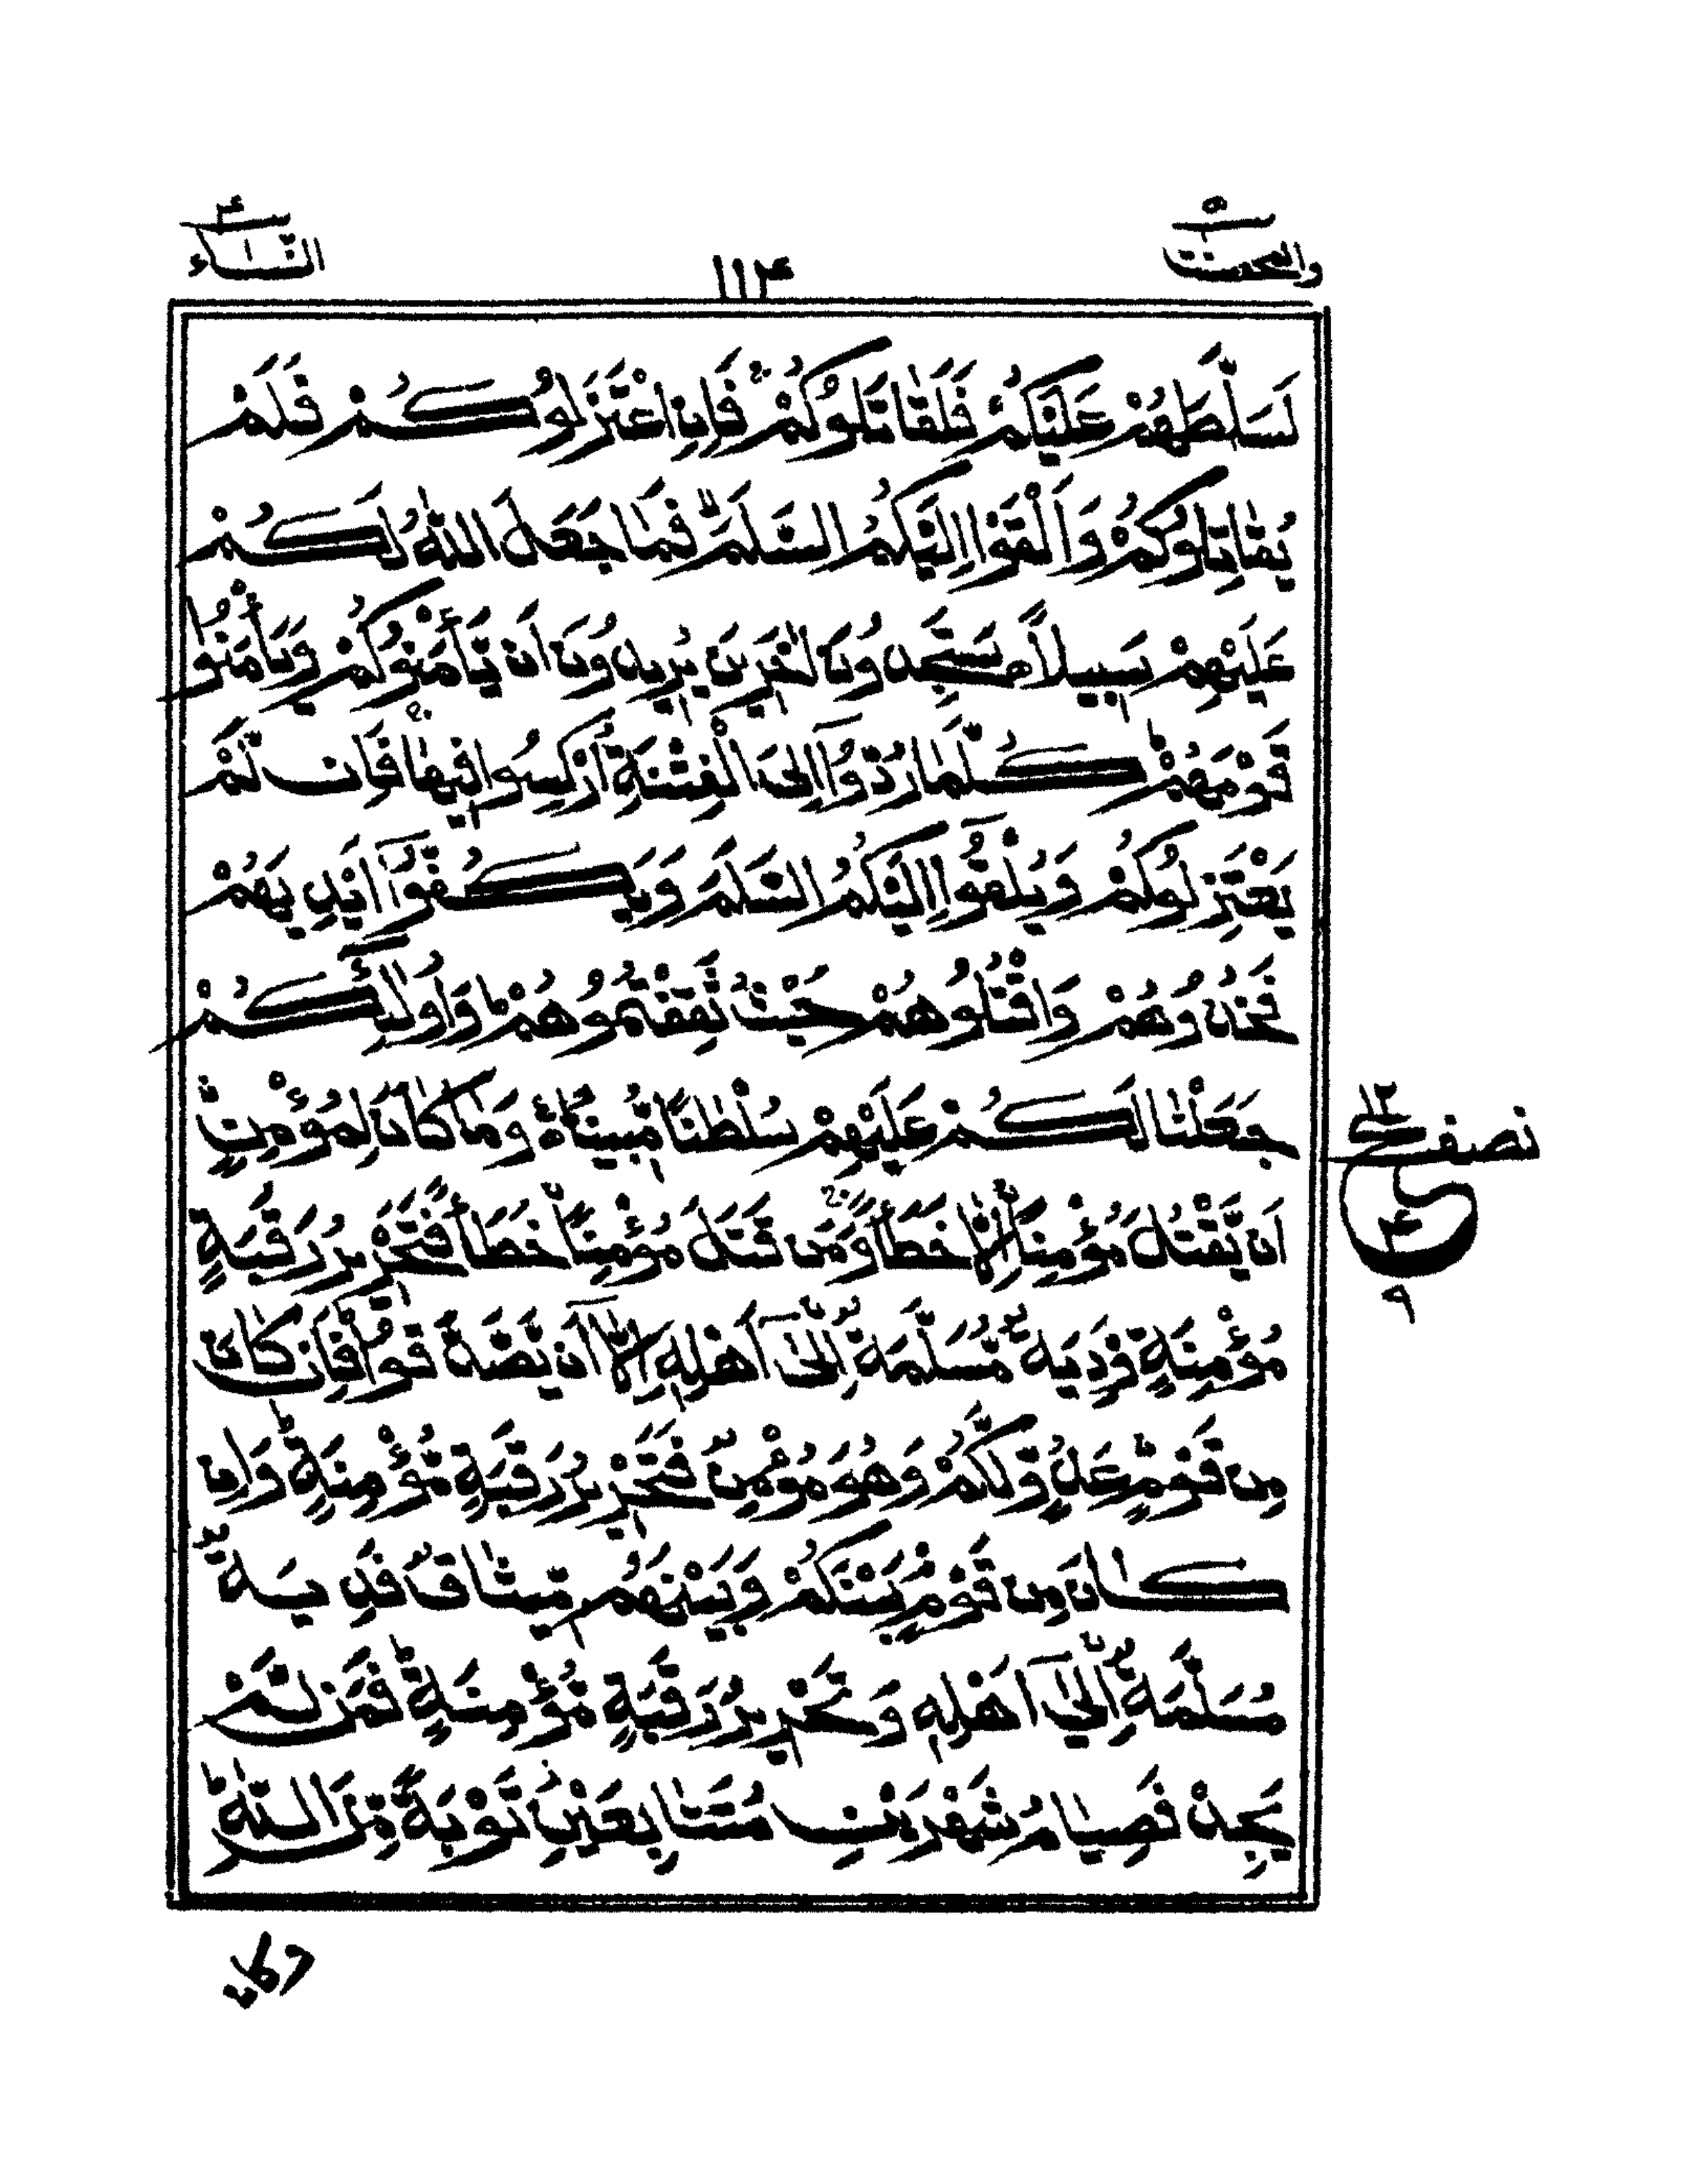 والمحصنت ۵
۱۱۴
النساء ۴
لَسَلَّطَهُمْ عَلَيْكُمْ فَلَقٰتَلُوْكُمْ ۚ فَاِنِ اعْتَزَلُوْكُمْ فَلَمْ
يُقَاتِلُوْكُمْ وَاَلْقَوْا اِلَيْكُمُ السَّلَمَ ۙ فَمَا جَعَلَ اللّٰهُ لَكُمْ
عَلَيْهِمْ سَبِيْلًا ۝ سَتَجِدُوْنَ اٰخَرِيْنَ يُرِيْدُوْنَ اَنْ يَّاْمَنُوْكُمْ وَيَاْمَنُوْا
قَوْمَهُمْ ؕ كُلَّمَا رُدُّوْٓا اِلَى الْفِتْنَةِ اُرْكِسُوْا فِيْهَا ۚ فَاِنْ لَّمْ
يَعْتَزِلُوْكُمْ وَيُلْقُوْٓا اِلَيْكُمُ السَّلَمَ وَيَكُفُّوْٓا اَيْدِيَهُمْ
فَخُذُوْهُمْ وَاقْتُلُوْهُمْ حَيْثُ ثَقِفْتُمُوْهُمْ ؕ وَاُولٰٓئِكُمْ
جَعَلْنَا لَكُمْ عَلَيْهِمْ سُلْطٰنًا مُّبِيْنًا ۝ وَمَا كَانَ لِمُؤْمِنٍ
اَنْ يَّقْتُلَ مُؤْمِنًا اِلَّا خَطَـًٔا ۚ وَمَنْ قَتَلَ مُؤْمِنًا خَطَـًٔا فَتَحْرِيْرُ رَقَبَةٍ
مُّؤْمِنَةٍ وَّدِيَةٌ مُّسَلَّمَةٌ اِلٰٓى اَهْلِهٖٓ اِلَّآ اَنْ يَّصَّدَّقُوْا ؕ فَاِنْ كَانَ
مِنْ قَوْمٍ عَدُوٍّ لَّكُمْ وَهُوَ مُؤْمِنٌ فَتَحْرِيْرُ رَقَبَةٍ مُّؤْمِنَةٍ ؕ وَاِنْ
كَانَ مِنْ قَوْمٍۭ بَيْنَكُمْ وَبَيْنَهُمْ مِّيْثَاقٌ فَدِيَةٌ
مُّسَلَّمَةٌ اِلٰٓى اَهْلِهٖ وَتَحْرِيْرُ رَقَبَةٍ مُّؤْمِنَةٍ ۚ فَمَنْ لَّمْ
يَجِدْ فَصِيَامُ شَهْرَيْنِ مُتَتَابِعَيْنِ ؗ تَوْبَةً مِّنَ اللّٰهِ ؕ
نصف
۱۲
ع
۴
۹
وكان